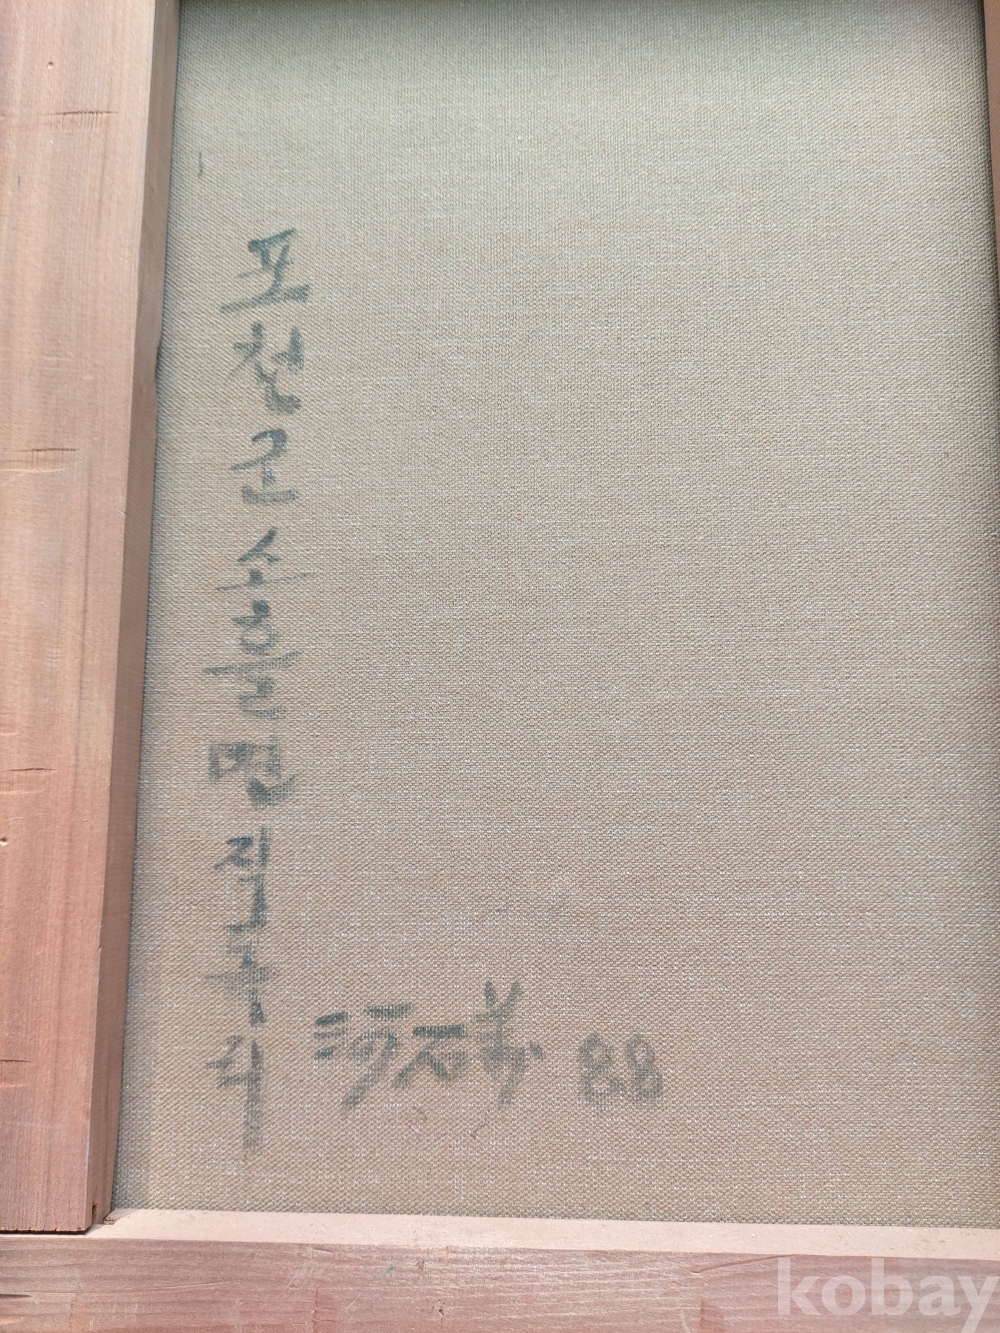 포천군소흘면직동리
河石 88
kobay